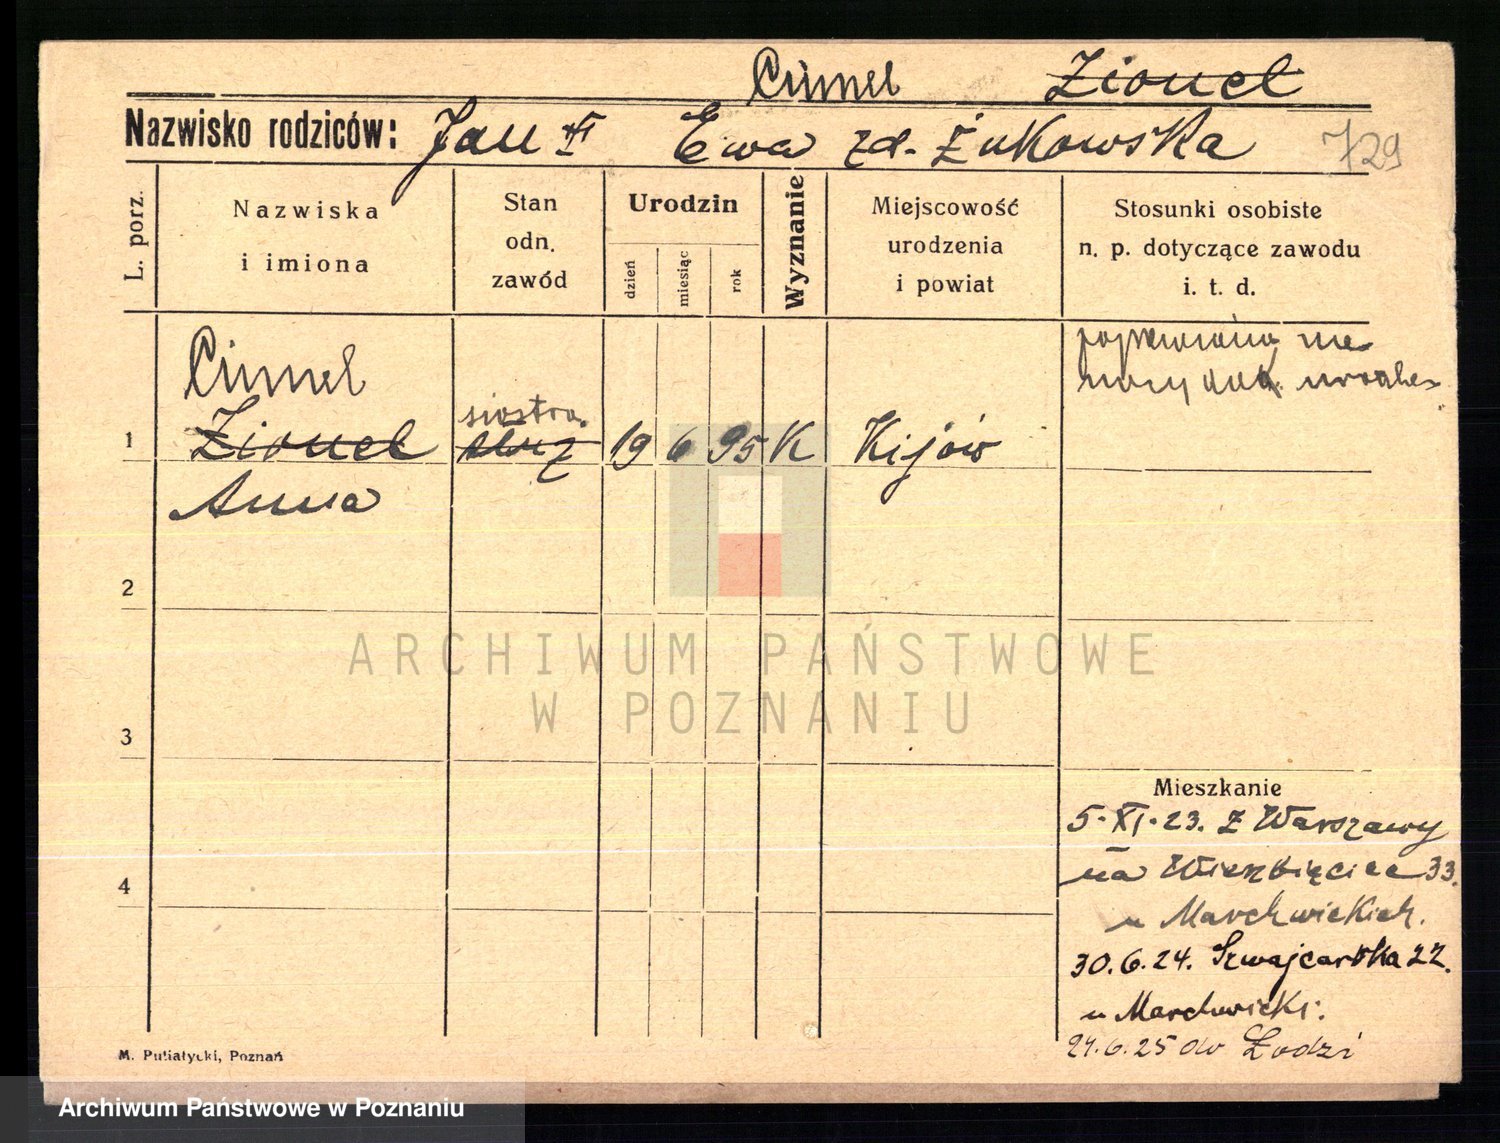 Cimel Zionel
Nazwisko rodziców: Jan Ewa zd. Żukowska 729
L. porz.
Nazwiska
i imiona
Stan
odn.
zawód
Urodzin
dzień
miesiąc
rok
Wyznanie
Miejscowość
urodzenia
i powiat
Stosunki osobiste
n. p. dotyczące zawodu
i. t. d.
Cimel
1 Zionel siostra 19 6 95 K Kijów
Anna
2
3
4
ARCHIWUM PAŃSTWOWE
W POZNANIU
Mieszkanie
5.XI.23. z Warszawy
na Wierzbięcice 33.
u Marchwickich.
30.6.24. Szwajcarska 22.
u Marchwicki.
24.6.25 do Łodzi
M. Putiatycki, Poznań
Archiwum Państwowe w Poznaniu